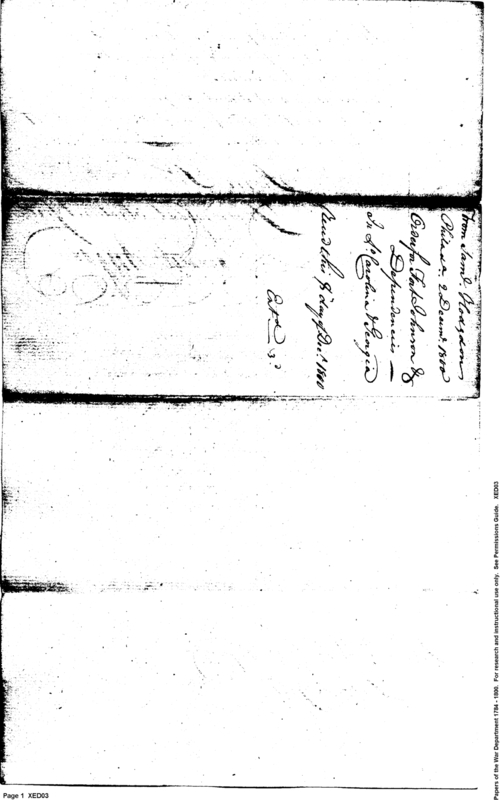 From Saml. Hodgdon
Philada. 2 Decemr. 1800
Order for Fort Johnson &
Dependencies —
In So. Carolina & Georgia
Recd this 9 day of Decr. 1800
Entd
Papers of the War Department 1784 - 1800. For research and instructional use only. See Permissions Guide. XED03
Page 1 XED03